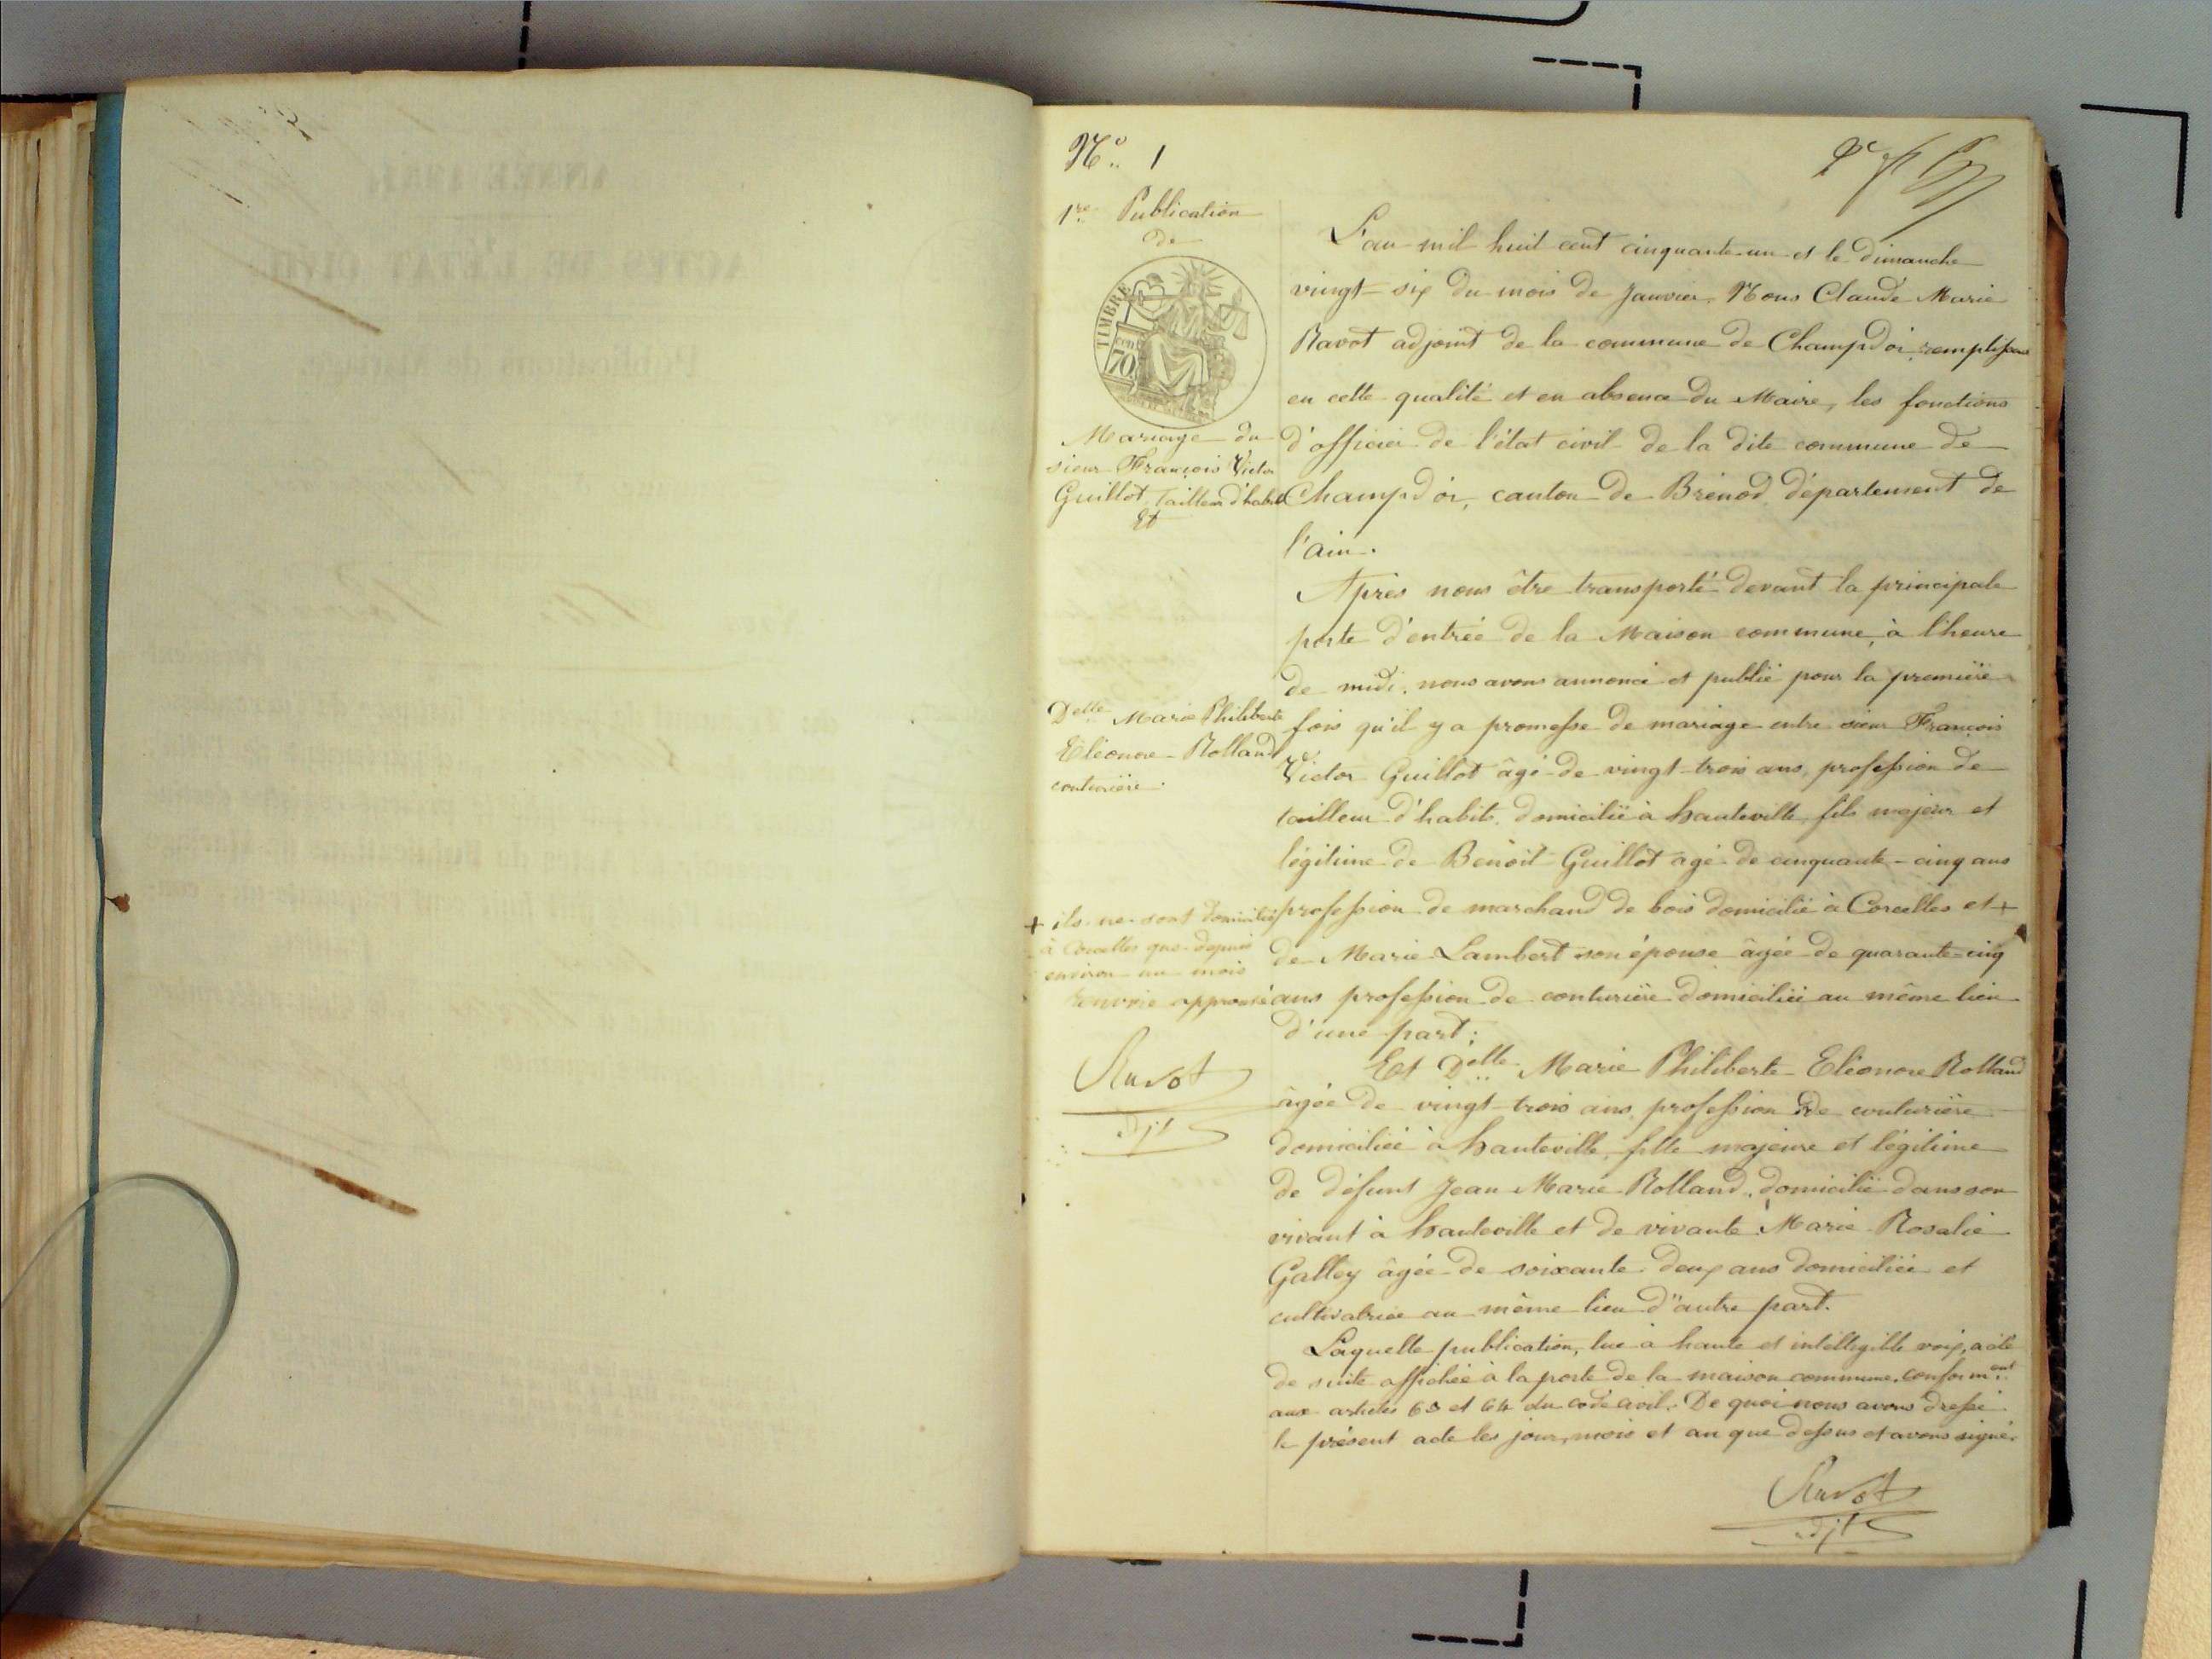 N° 1
1re Publication
de
TIMBRE
cen
70.
Mariage du
sieur François Victor
Guillot, tailleur d'habits
Et
Delle Marie Philiberte
Eléonore Rolland
couturière.
+ ils ne sont domiciliés
à Corcelles que depuis
environ un mois
renvoie approuvé
Ravot
adjt
L'an mil huit cent cinquante-un et le dimanche
vingt-six du mois de Janvier, Nous Claude Marie
Ravot adjoint de la commune de Champdor, remplissant
en cette qualité et en absence du Maire, les fonctions
d'officier de l'état civil de la dite commune de
Champdor, canton de Brénod, département de
l'ain.
Après nous être transporté devant la principale
porte d'entrée de la Maison commune, à l'heure
de midi, nous avons annoncé et publié pour la première
fois qu'il y a promesse de mariage entre sieur François
Victor Guillot âgé de vingt-trois ans, profession de
tailleur d'habits, domicilié à hauteville, fils majeur et
légitime de Benoit Guillot agé de cinquante-cinq ans
profession de marchand de bois domicilié à Corcelles et +
de Marie Lambert son épouse âgée de quarante-cinq
ans profession de couturière domiciliée au même lieu
d'une part;
Et Delle Marie Philiberte Eléonore Rolland
âgée de vingt-trois ans, profession de couturière
domiciliée à hauteville, fille majeure et légitime
de défunt Jean Marie Rolland, domicilié dans son
vivant à hauteville et de vivante Marie Rosalie
Galley âgée de soixante deux ans domiciliée et
cultivatrice au même lieu d'autre part.
Laquelle publication, lue à haute et intelligible voix, a été
de suite affichée à la porte de la maison commune, conformment
aux articles 63 et 64 du code civil. De quoi nous avons dressé
le présent acte les jour, mois et an que dessus et avons signé.
Ravot
adjt